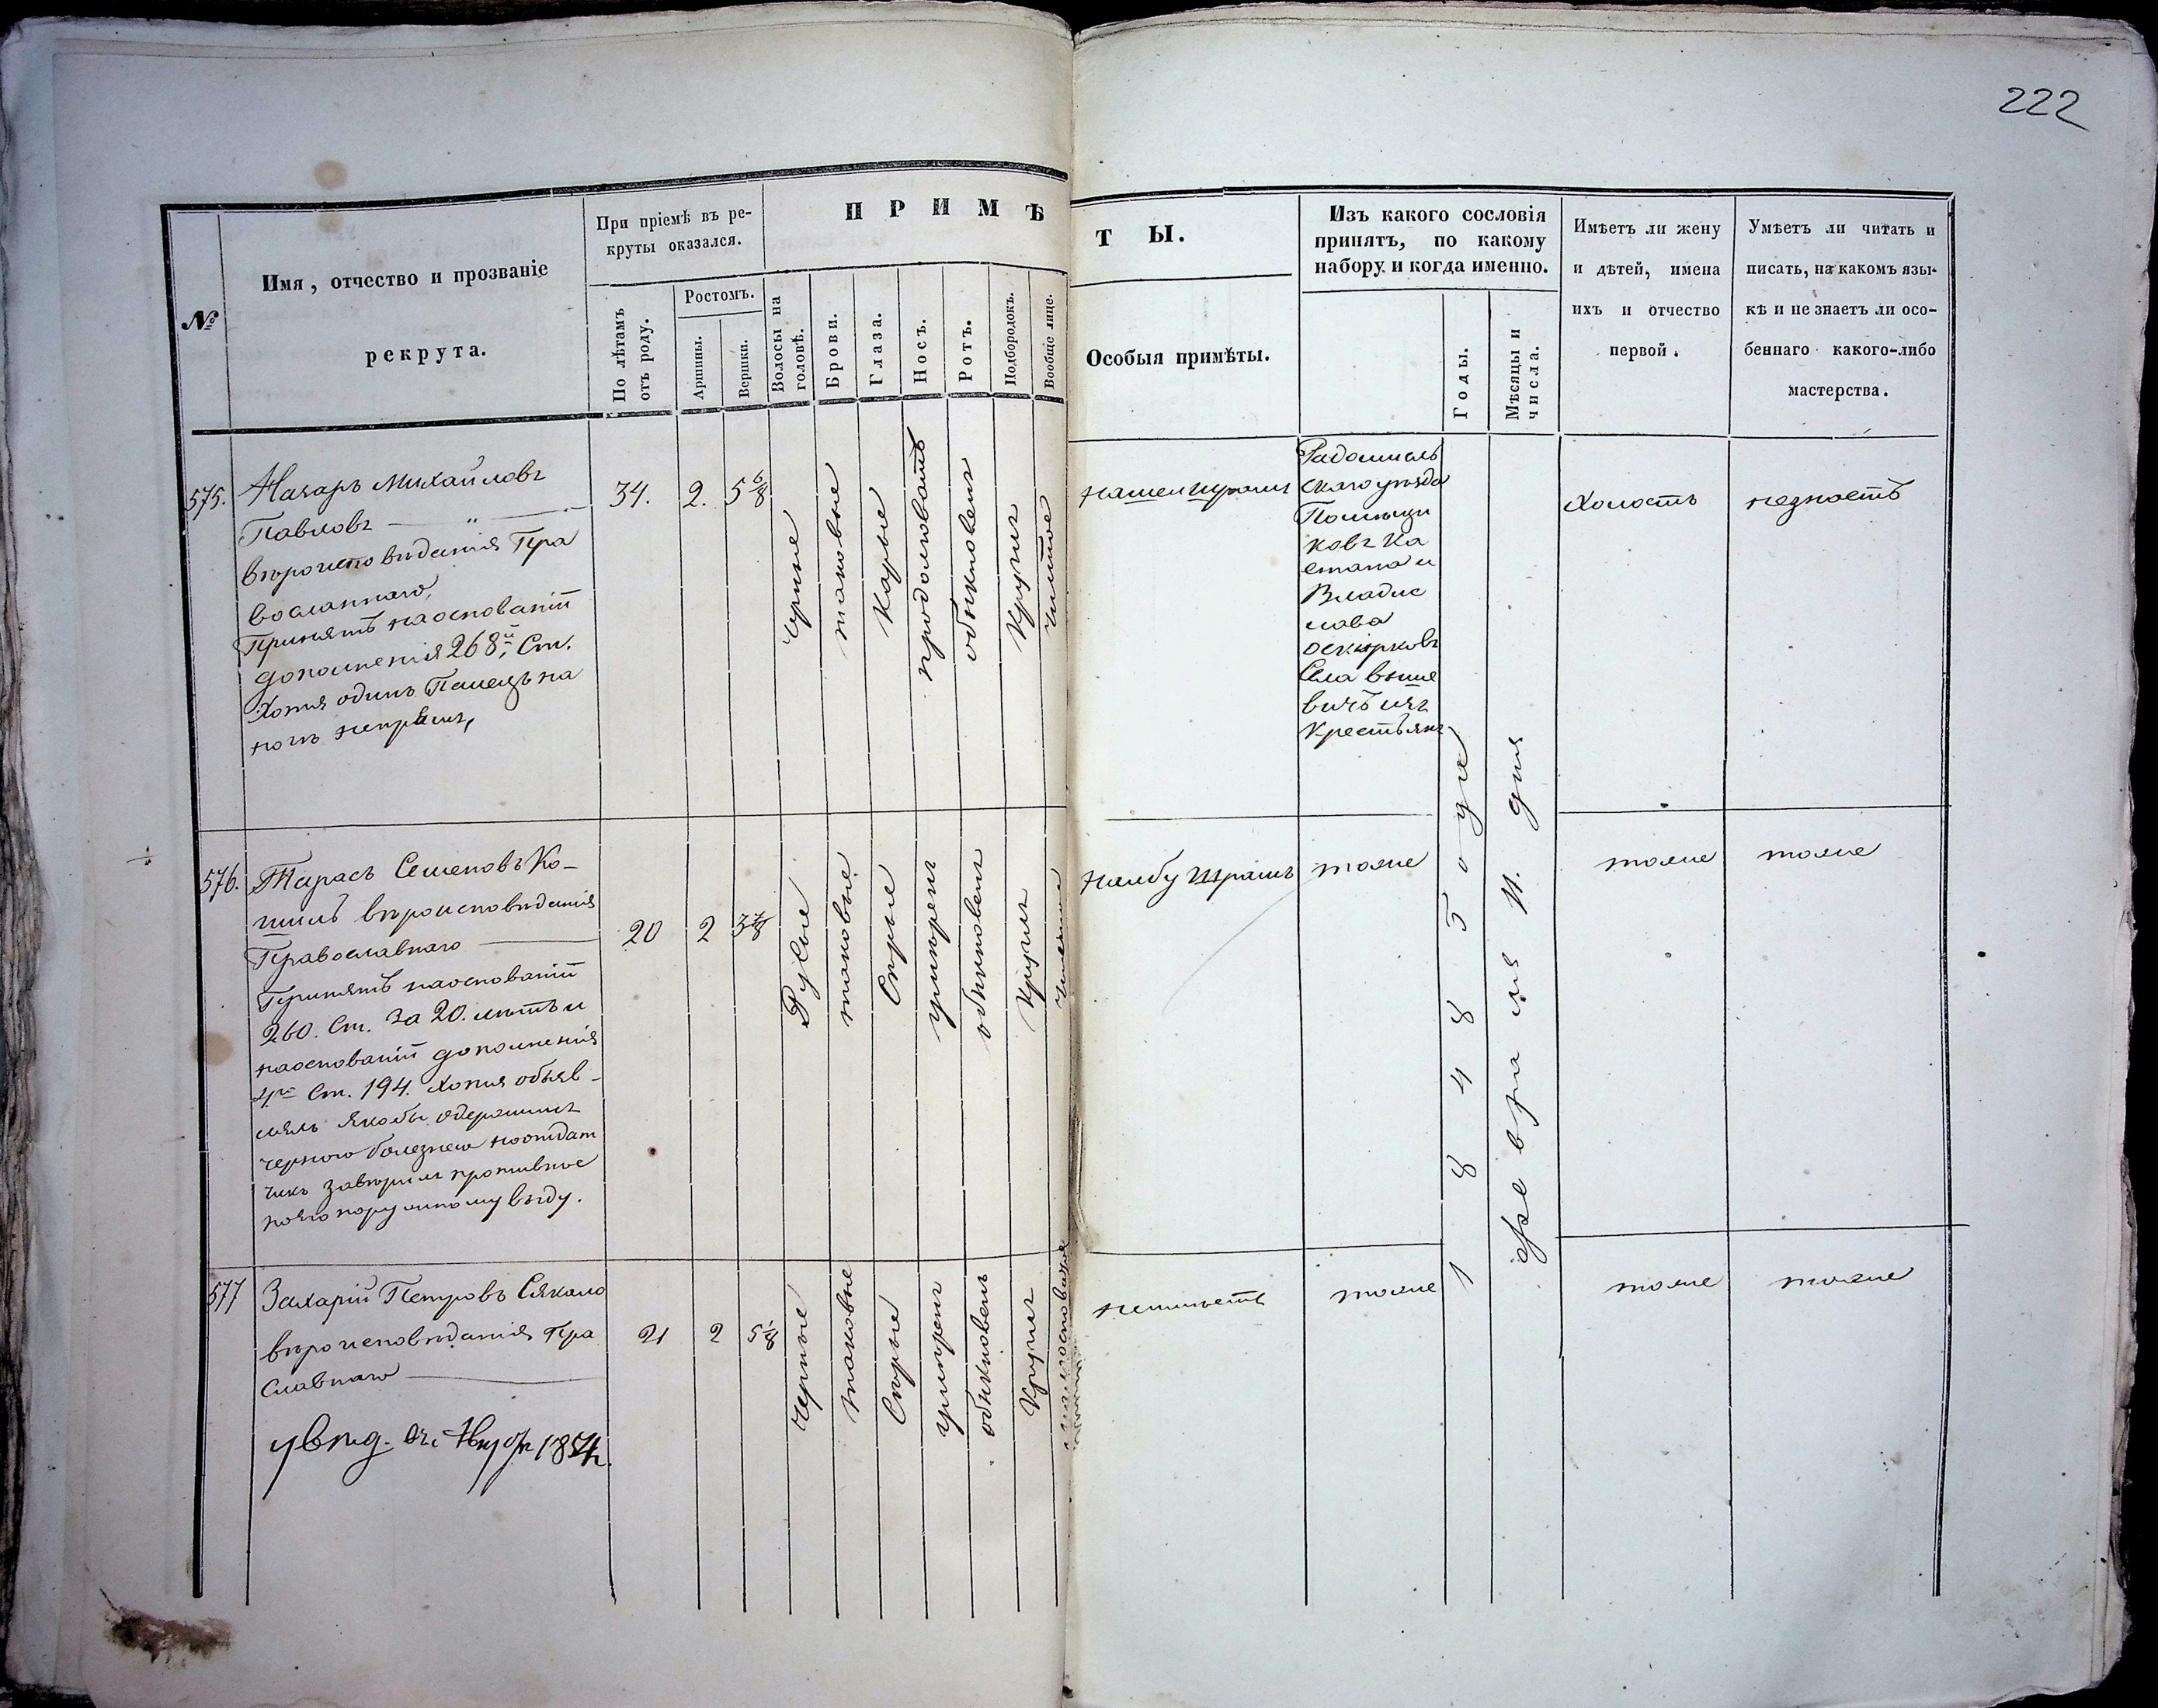 222
№
Имя, отчество и прозваніе
рекрута.
При пріемѣ въ ре-
круты оказался.
По лѣтамъ
отъ роду.
Ростомъ.
Аршины.
Вершки.
ПРИМѢ
ТЫ.
Волосы на
головѣ.
Брови.
Глаза.
Носъ.
Ротъ.
Подбородокъ.
Вообще лице.
Особыя примѣты.
Изъ какого сословія
принятъ, по какому
набору и когда именно.
Годы.
Мѣсяцы и
числа.
Имѣетъ ли жену
и дѣтей, имена
ихъ и отчество
первой.
Умѣетъ ли читать и
писать, на какомъ язы-
кѣ и не знаетъ ли осо-
беннаго какого-либо
мастерства.
575.
Назаръ Михайловъ
Павловъ
вѣроисповѣданія Пра
вославнаго,
Принятъ наоснованіи
дополненія 268й Ст.
Хотя одинъ Палецъ на
34.
2.
5 6/8
Черные
таковые
Карые
продолговатъ
обыкновенъ
Круглъ
чистое
нашеи шрамъ
Радомысль
скаго уѣзда
Помѣщи
ковъ Ка
етана и
Владис
лава
оскирковъ
Села выше
вичъ изъ
Крестьянъ
1848 5 оде
февраля 11. дня
Холостъ
незнаетъ
576.
Тарасъ Семеновъ Ко-
шилъ вѣроисповѣданія
Православнаго
Принятъ наоснованіи
260. Ст. за 20. лѣтъ и
наоснованіи дополненія
Ст. 194. Хотя объяв-
лялъ якобы одержимъ
черною болезнею но отдат
чикъ завѣрилъ противное
20
2
3 7/8
Русые
таковые
Сѣрые
умѣренъ
обыкновенъ
Круглъ
налбу шрамъ
тоже
тоже
тоже
577
Захарій Петровъ Сякало
вѣроисповѣданія Пра
славнаго
21
2
5 1/8
Черные
таковые
Сѣрые
умѣренъ
обыкновенъ
Круглъ
неимѣетъ
тоже
тоже
тоже